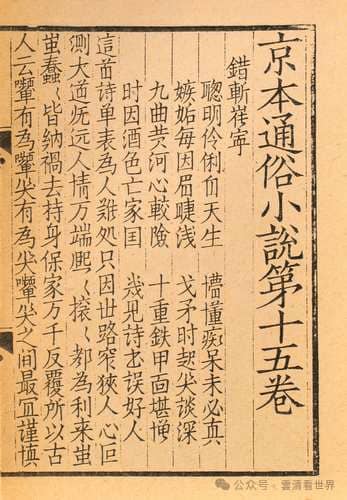 京本通俗小說第十五卷
錯斬崔寧
聰明伶俐自天生 懵懂痴呆未必真
嫉妬每因眉睫淺 戈矛時起笑談深
九曲黄河心較險 十重鉄甲面堪憎
時因酒色亡家国 幾見詩书誤好人
這首詩单表為人难処只因世路窄狹人心叵
測大道既远人情万端熙〻攘〻都為利來蚩
蚩蠢〻皆納禍去持身保家万千反覆所以古
人云顰有為顰笑有為笑顰笑之間最宜謹慎
公众号 · 雲清看世界